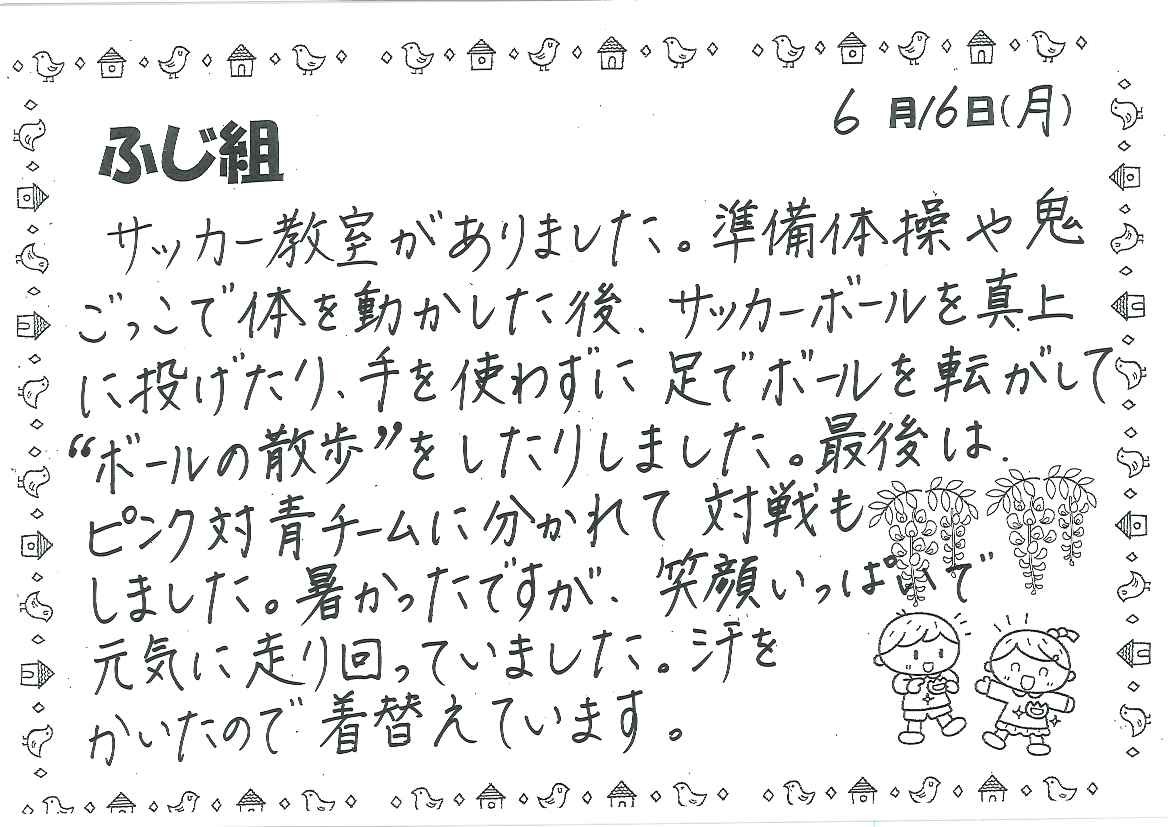 6月16日(月)
ふじ組
サッカー教室がありました。準備体操や鬼
ごっこで体を動かした後、サッカーボールを真上
に投げたり、手を使わずに足でボールを転がして
“ボールの散歩”をしたりしました。最後は、
ピンク対青チームに分かれて対戦も
しました。暑かったですが、笑顔いっぱいで
元気に走り回っていました。汗を
かいたので着替えています。